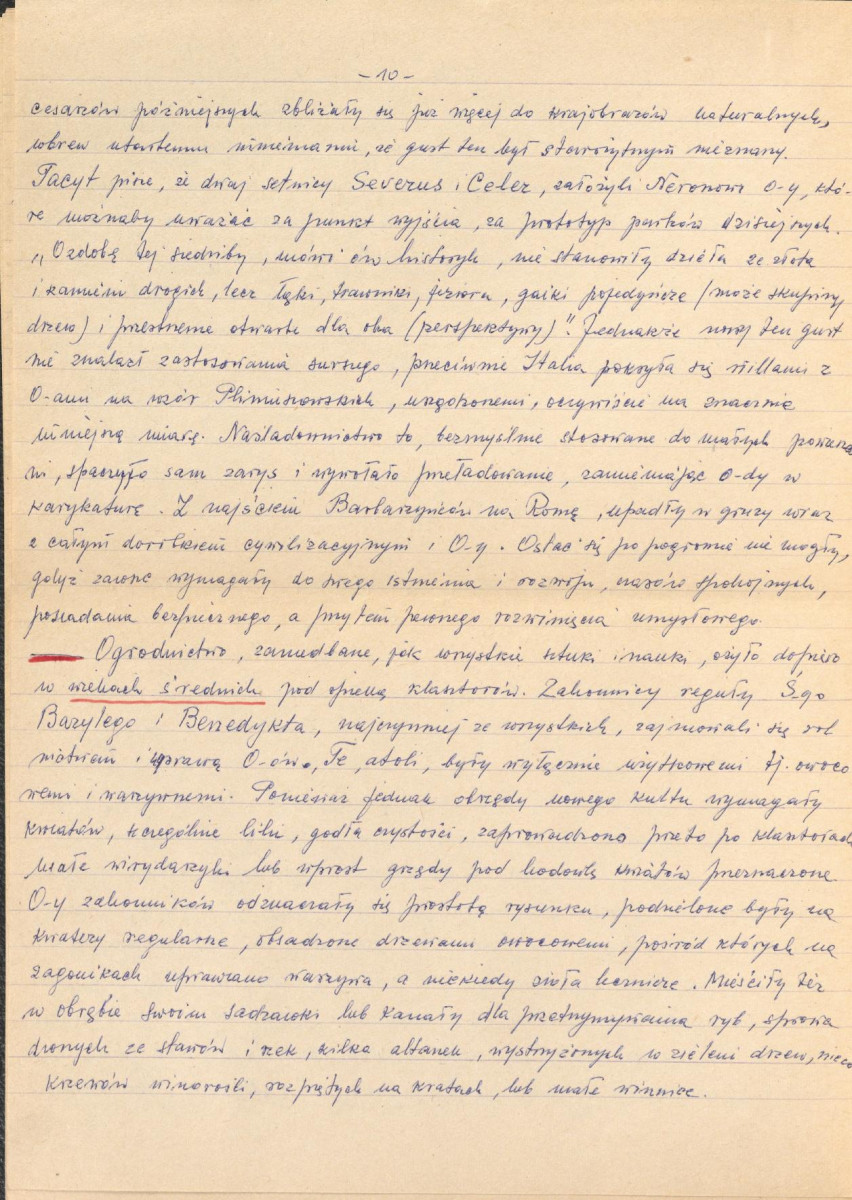 - 10 -
cesarzów późniejszych zbliżały się już więcej do krajobrazów naturalnych,
wbrew utartemu mniemaniu, że gust ten był starożytnym nieznany.
Tacyt pisze, że dwaj setnicy Severus i Celer, założyli Neronowi O-y, któ-
re możnaby uważać za punkt wyjścia, za prototyp parków dzisiejszych.
„Ozdobę tej siedziby, mówi ów historyk, nie stanowiły dzieła ze złota
i kamieni drogich, lecz łąki, trawniki, jeziora, gaiki pojedyńcze /może skupiny
drzew) i przestrzenie otwarte dla oka (perspektywy)". Jednakże nowy ten gust
nie znalazł zastosowania szerszego, przeciwnie Italia pokryła się willami z
O-ami na wzór Pliniuszowskich, urządzonemi, oczywiście na znacznie
mniejszą miarę. Naśladownictwo to, bezmyślnie stosowane do małych powierzch
ni, spaczyło sam zarys i wywołało przeładowanie, zamieniając O-dy w
karykaturę. Z najściem Barbarzyńców na Romę, upadły w gruzy wraz
z całym dorobkiem cywilizacyjnym i O-y. Ostać się po pogromie nie mogły,
gdyż zawsze wymagały do swego istnienia i rozwoju, czasów spokojnych,
posiadania bezpiecznego, a przytem pewnego rozwinięcia umysłowego.
Ogrodnictwo, zaniedbane, jak wszystkie sztuki i nauki, ożyło dopiero
w wiekach średnich pod opieką klasztorów. Zakonnicy reguły Ś-go
Bazylego i Benedykta, najczynniej ze wszystkich, zajmowali się rol
nictwem i uprawą O-ów. Te, atoli, były wyłącznie użytkowemi tj. owoco
wemi i warzywnemi. Ponieważ jednak obrzędy nowego kultu wymagały
kwiatów, szczególnie lilii, godła czystości, zaprowadzono przeto po klasztorach
małe wirydarzyki lub wprost grzędy pod hodowlę kwiatów przeznaczone.
O-y zakonników odznaczały się prostotą rysunku, podzielone były na
kwatery regularne, obsadzone drzewami owocowemi, pośród których na
zagonikach uprawiano warzywa, a niekiedy zioła lecznicze. Mieściły też
w obrębie swoim sadzawki lub kanały dla przetrzymywania ryb, sprowa
dzonych ze stawów i rzek, kilka altanek, wystrzyżonych w zieleni drzew, nieco
krzewów winorośli, rozpiętych na kratach, lub małe winnice.